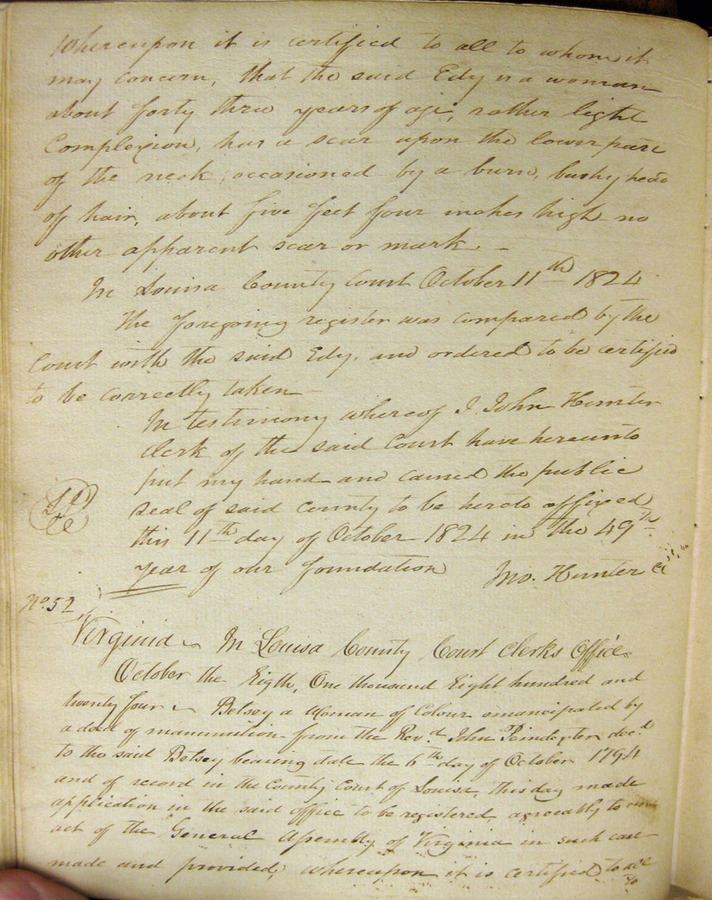 Whereupon it is certified to all to whom it
may concern, that the said Edy is a woman
about forty three years of age, rather light
Complexion, has a scar upon the lower part
of the neck, occasioned by a burn, bushy head
of hair, about five feet four inches high no
other apparent scar or mark. –
In Louisa County Court October 11th 1824
The foregoing register was compared by the
Court with the said Edy, and ordered to be certified
to be correctly taken
In testimony whereof I John Hunter
Clerk of the said Court have hereunto
put my hand and caused the public
seal of said county to be hereto affixed
this 11th day of October 1824 in the 49th
year of our foundation
Jno. Hunter
No. 52
Virginia In Louisa County Court Clerks Office
October the Eigth, One thousand Eight hundred and
twenty four Betsey a Woman of Colour emancipated by
a deed of manumition from the Revd John decd
to the said Betsey bearing date the 6th day of October
and of record in the County Court of Louisa, this day made
application in the said office to be registered agreeably to
act of the General Assembly of Virginia in such case
made and provided, whereupon it is certified to all